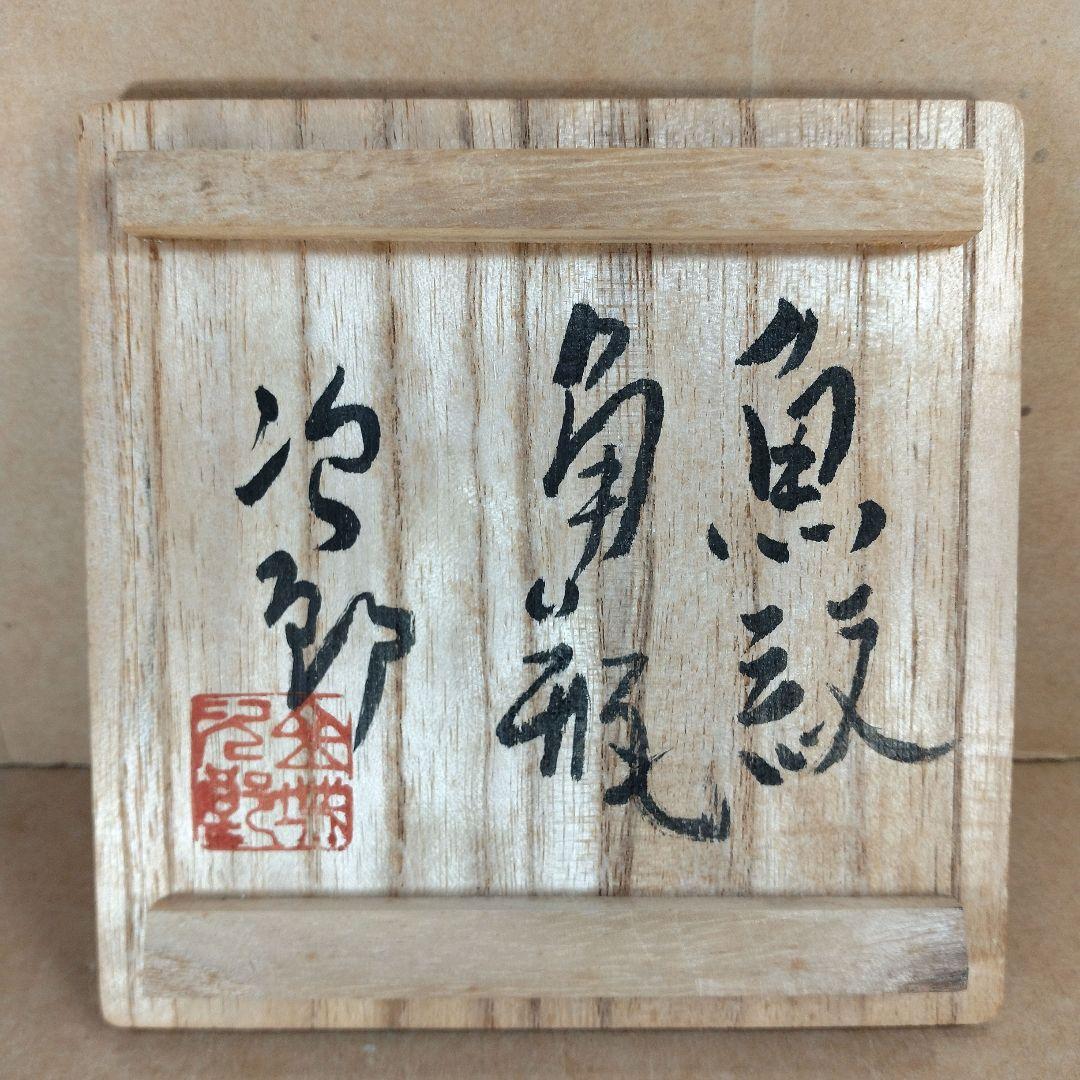 魚紋
角瓶
次郎